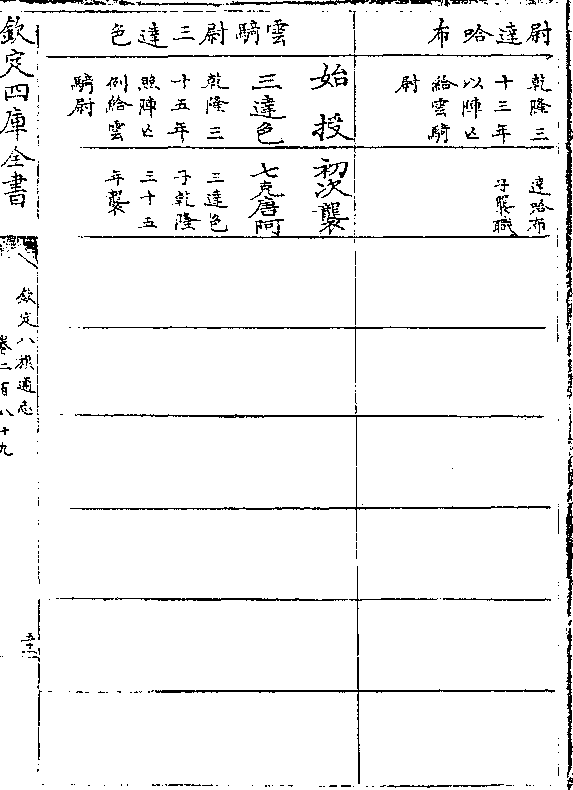 尉達哈布
乾隆三
十三年
以陣亡
給雲騎
尉
達哈布
子襲職
雲騎尉三達色
始授
三達色
乾隆三
十五年
照陣亡
例給雲
騎尉
初次襲
七克唐阿
三達色
子乾隆
三十五
年襲
欽定四庫全書
欽定八旗通志
卷二百八十九